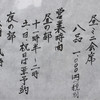 昼ミニ会席
八品 一、〇〇〇円(税別)
営業時間
昼の部
十一時半〜二時
土日祝日は要予約
夜の部